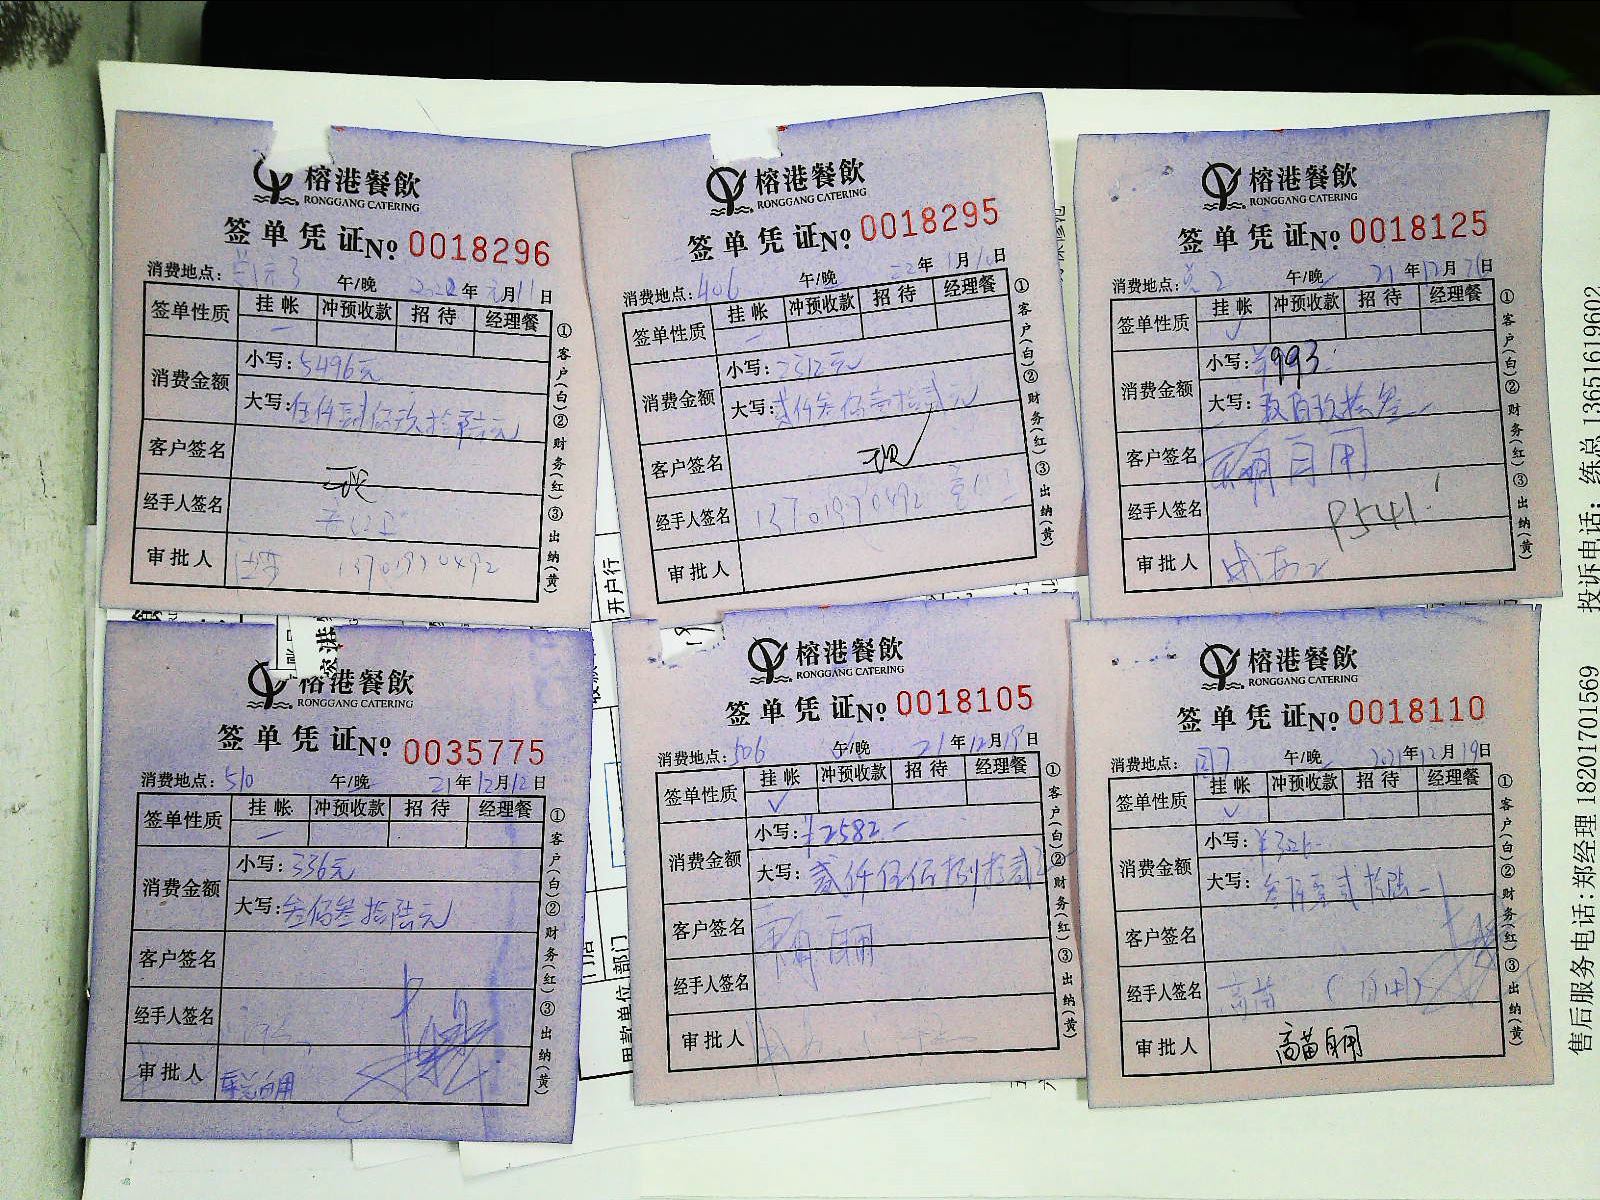 榕港餐飲
RONGGANG CATERING
签单凭证№ 0018296
消费地点: 午/晚 2022年元月11日
签单性质 挂帐 冲预收款 招待 经理餐
消费金额 小写:5496元
大写:伍仟肆佰玖拾陆元
客户签名
经手人签名
审批人 13701970492
①客户(白)②财务(红)③出纳(黄)
榕港餐飲
RONGGANG CATERING
签单凭证№ 0018295
消费地点:406 午/晚 22年1月10日
签单性质 挂帐 冲预收款 招待 经理餐
消费金额 小写:2312元
大写:贰仟叁佰壹拾贰元
客户签名
经手人签名 13701970492
审批人
①客户(白)②财务(红)③出纳(黄)
榕港餐飲
RONGGANG CATERING
签单凭证№ 0018125
消费地点: 午/晚 21年12月26日
签单性质 挂帐 冲预收款 招待 经理餐
消费金额 小写:¥993.
大写:玖佰玖拾叁
客户签名 自用
经手人签名 P541
审批人
①客户(白)②财务(红)③出纳(黄)
榕港餐飲
RONGGANG CATERING
签单凭证№ 0035775
消费地点:510 午/晚 21年12月12日
签单性质 挂帐 冲预收款 招待 经理餐
消费金额 小写:336元
大写:叁佰叁拾陆元
客户签名
经手人签名
审批人 自用
①客户(白)②财务(红)③出纳(黄)
榕港餐飲
RONGGANG CATERING
签单凭证№ 0018105
消费地点:506 午/晚 21年12月19日
签单性质 挂帐 冲预收款 招待 经理餐
消费金额 小写:¥2582
大写:贰仟伍佰捌拾贰
客户签名 自用
经手人签名
审批人
①客户(白)②财务(红)③出纳(黄)
榕港餐飲
RONGGANG CATERING
签单凭证№ 0018110
消费地点: 午/晚 2021年12月19日
签单性质 挂帐 冲预收款 招待 经理餐
消费金额 小写:¥326
大写:叁佰贰拾陆
客户签名
经手人签名 高苗(自用)
审批人 高苗自用
①客户(白)②财务(红)③出纳(黄)
开户行
部门
售后服务电话:郑经理 18201701569 投诉电话:练总 13651619602